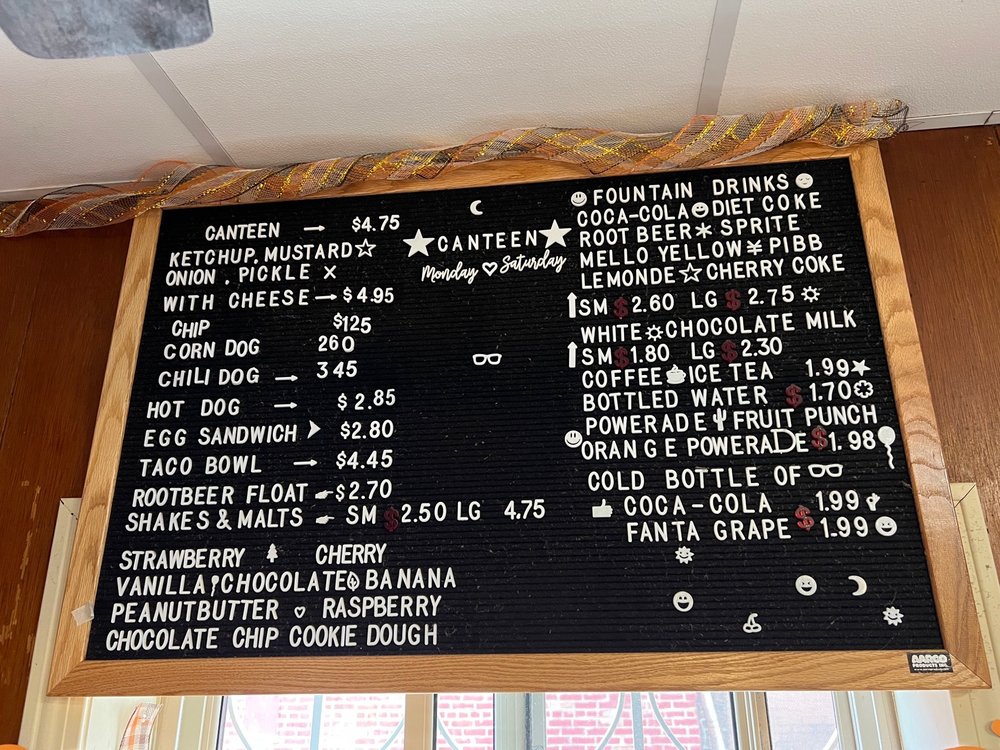 CANTEEN → $4.75
KETCHUP, MUSTARD ☆
ONION, PICKLE X
WITH CHEESE → $4.95
CHIP $125
CORN DOG 260
CHILI DOG → 345
HOT DOG → $2.85
EGG SANDWICH $2.80
TACO BOWL → $4.45
ROOTBEER FLOAT $2.70
SHAKES & MALTS SM $2.50 LG 4.75
STRAWBERRY CHERRY
VANILLA CHOCOLATE BANANA
PEANUTBUTTER ♡ RASPBERRY
CHOCOLATE CHIP COOKIE DOUGH
★ CANTEEN ★
Monday ♡ Saturday
FOUNTAIN DRINKS
COCA-COLA DIET COKE
ROOT BEER * SPRITE
MELLO YELLOW ¥ PIBB
LEMONDE ☆ CHERRY COKE
SM $2.60 LG $2.75
WHITE CHOCOLATE MILK
SM $1.80 LG $2.30
COFFEE ICE TEA 1.99
BOTTLED WATER $1.70
POWERADE FRUIT PUNCH
ORANGE POWERADE $1.98
COLD BOTTLE OF
COCA-COLA $1.99
FANTA GRAPE $1.99
AARCO
PRODUCTS INC.